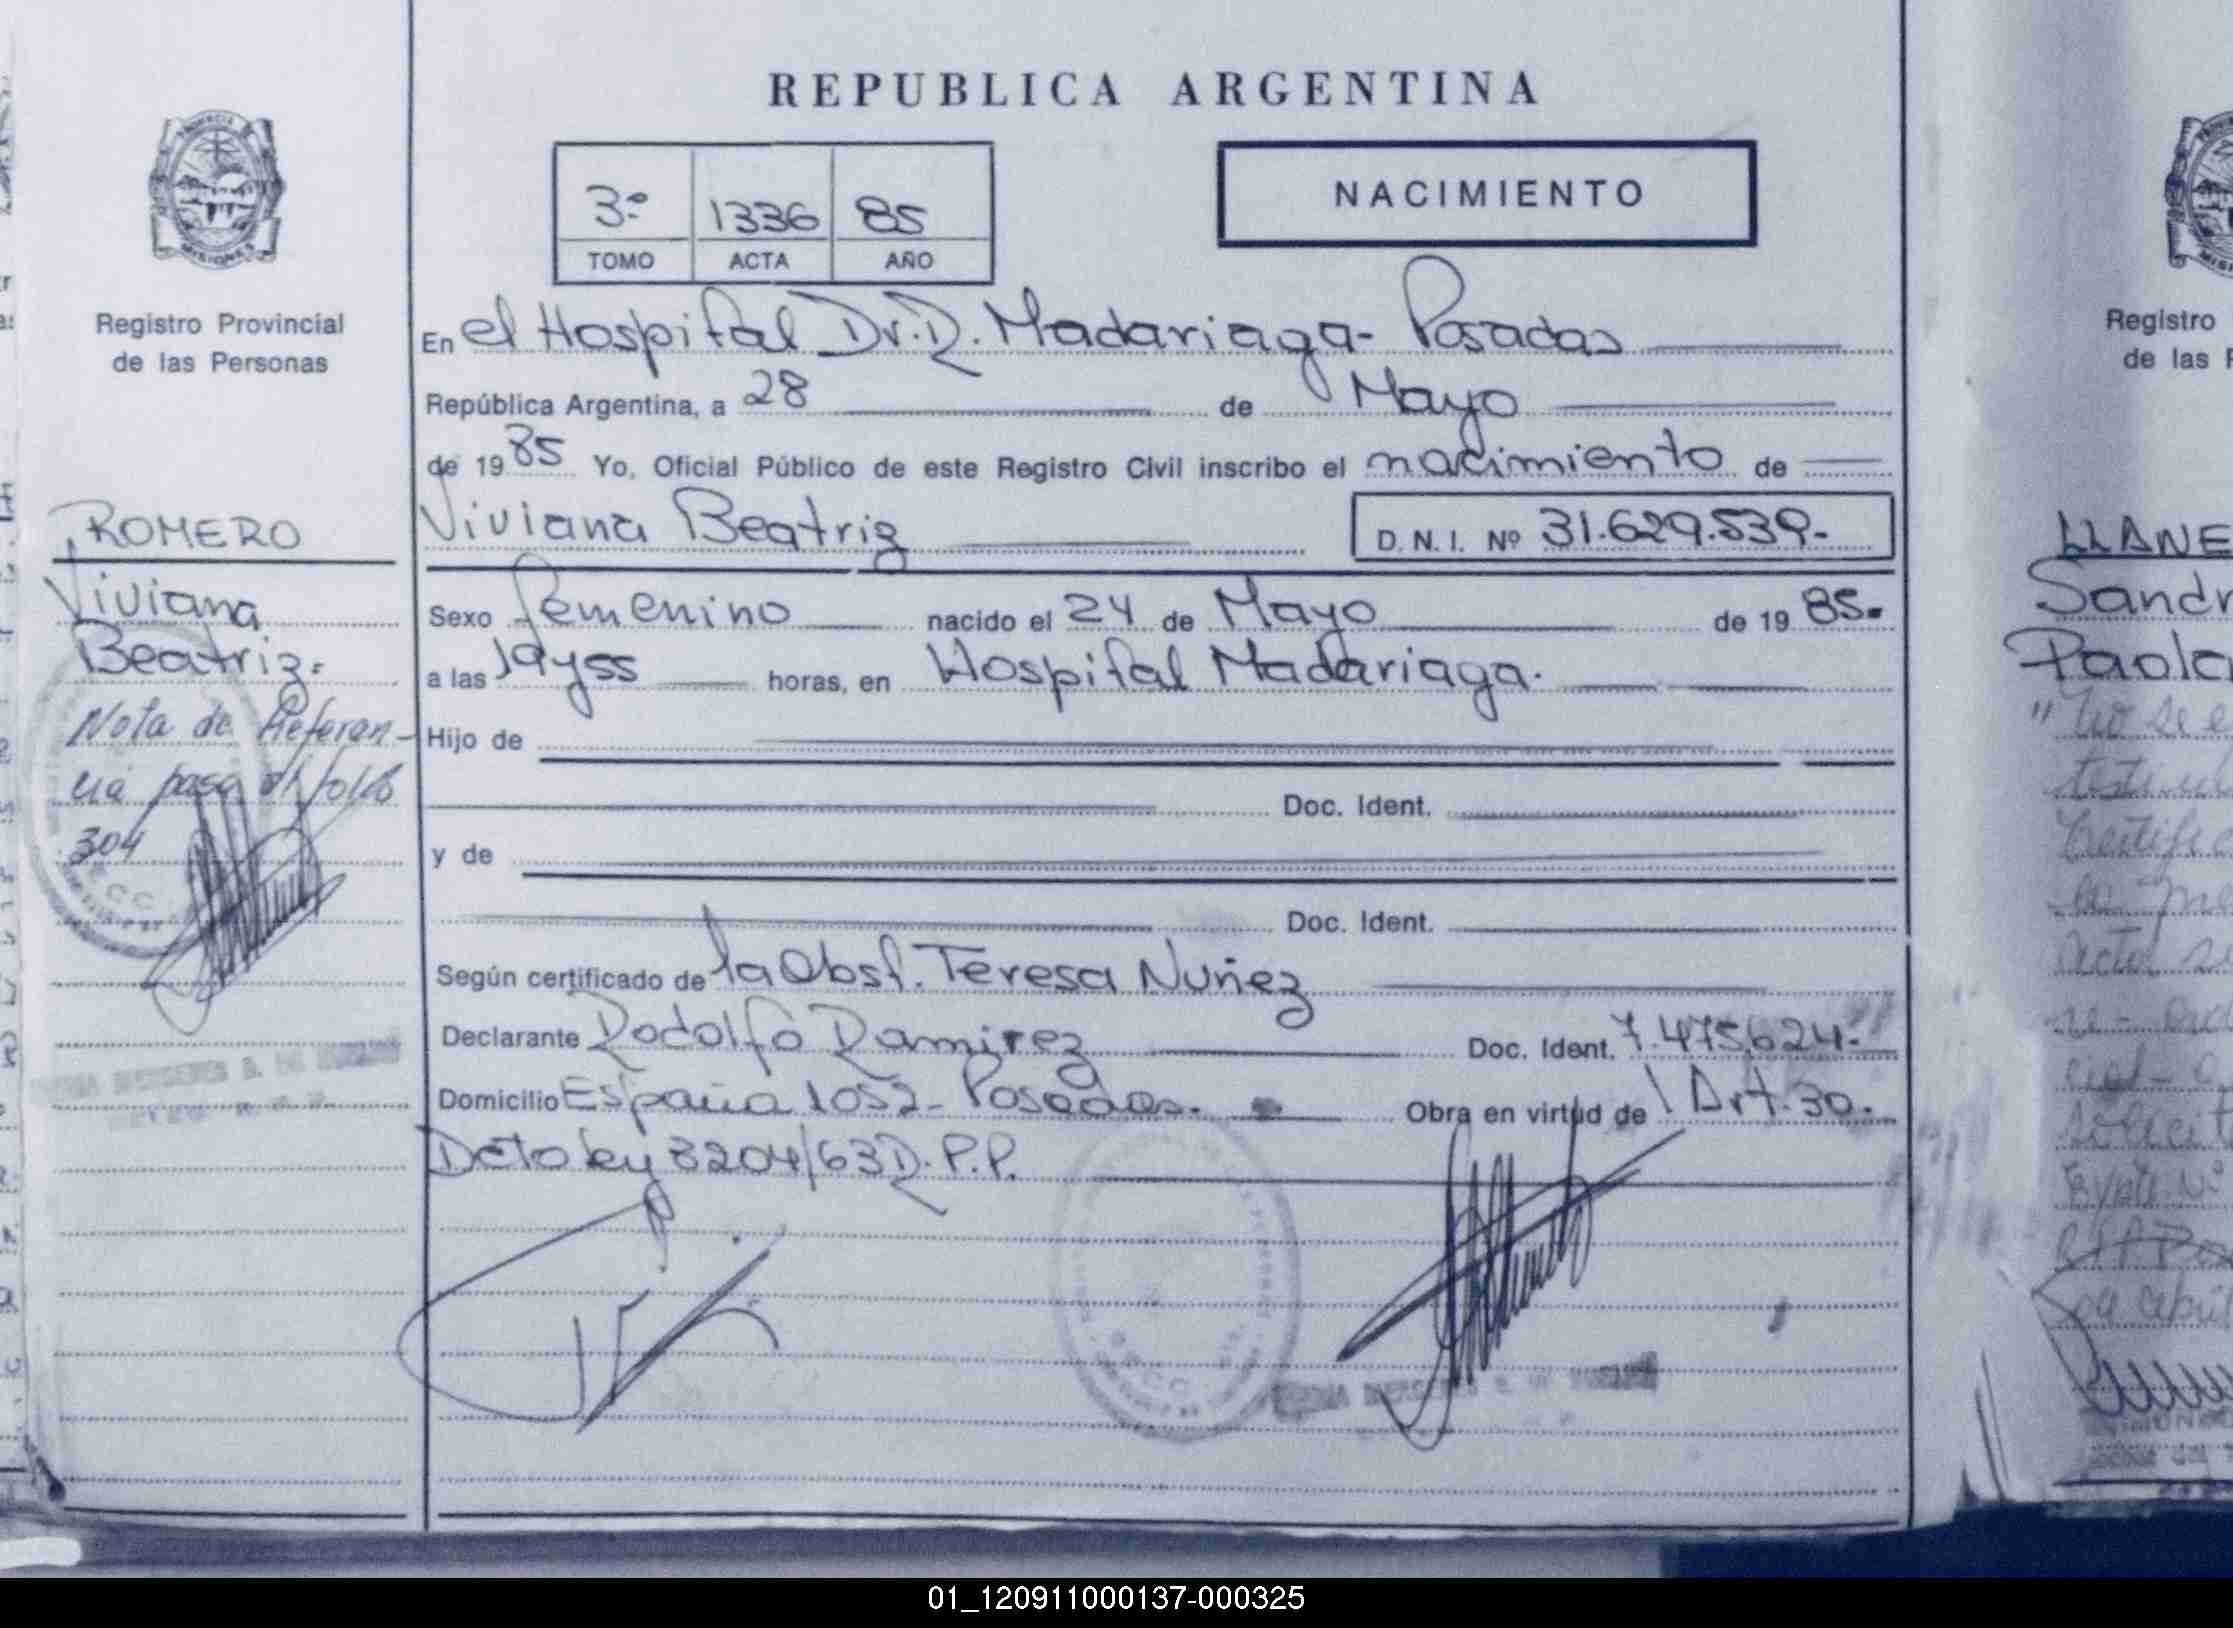 REPUBLICA ARGENTINA
PROVINCIA DE
MISIONES
Registro Provincial
de las Personas
3º 1336 85
TOMO ACTA AÑO
NACIMIENTO
En el Hospital Dr. R. Madariaga- Posadas
República Argentina, a 28 de Mayo
de 1985 Yo, Oficial Público de este Registro Civil inscribo el nacimiento de
Viviana Beatriz D. N. I. Nº 31.629.539.-
Sexo femenino nacido el 24 de Mayo de 1985.
a las 19y55 horas, en Hospital Madariaga.
Hijo de
Doc. Ident.
y de
Doc. Ident.
Según certificado de la Obst. Teresa Nuñez
Declarante Rodolfo Ramirez Doc. Ident. 7.475.624.-
Domicilio España 1052- Posadas.- Obra en virtud de l Art. 30.
Dcto ley 8204/63 R.P.P.
ROMERO
Viviana
Beatriz.
Nota de Referen-
cia pasa al folio
304
Registro
de las P
LLANE
Sandr
Paola
"No se e
01_120911000137-000325